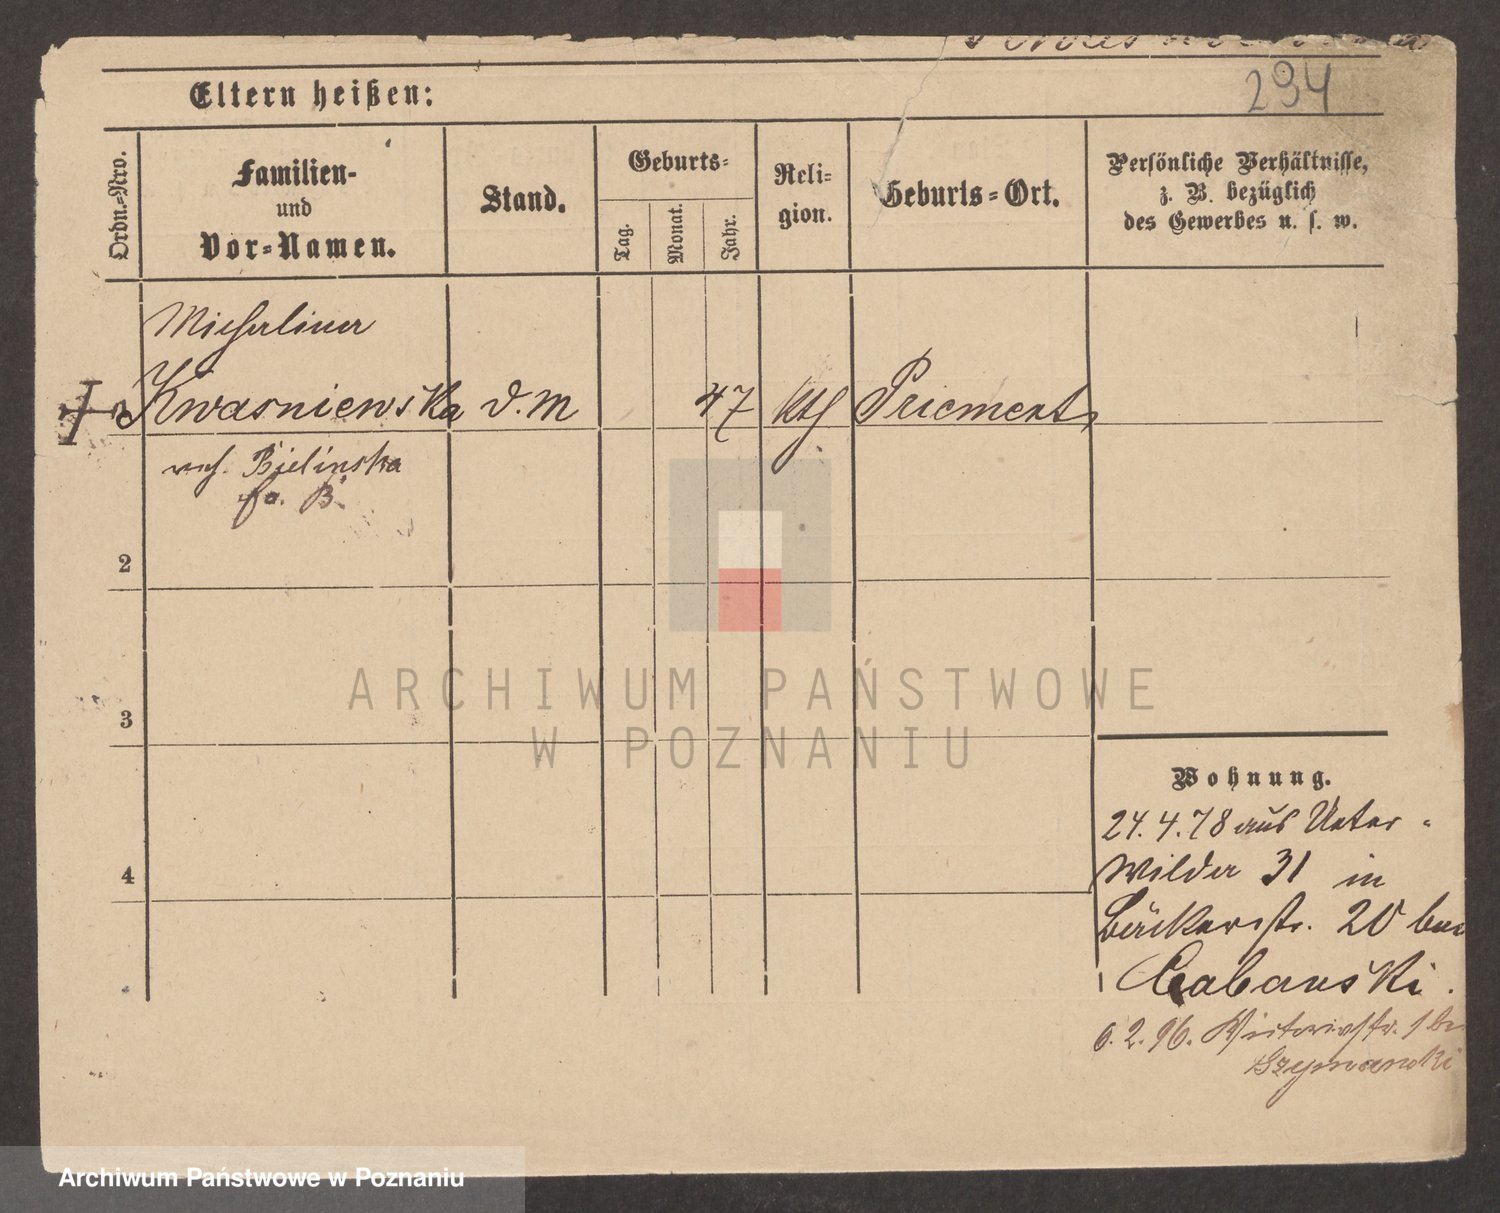 294
Eltern heißen:
Ordn.-Nro.
Familien-
und
Vor-Namen.
Stand.
Geburts-
Tag.
Monat.
Jahr.
Reli-
gion.
Geburts-Ort.
Persönliche Verhältnisse,
z. B. bezüglich
des Gewerbes u. s. w.
Michalina
Kwasniewska D.M 47 kth Priement
Bielinska
2
3
4
ARCHIWUM PAŃSTWOWE
W POZNANIU
Wohnung.
24.4.78 aus Unter-
Wilda 31 in
Bäckerstr. 20 bei
Cabanski.
6.2.96. Victoriastr. 1 bei
Szymanski
Archiwum Państwowe w Poznaniu